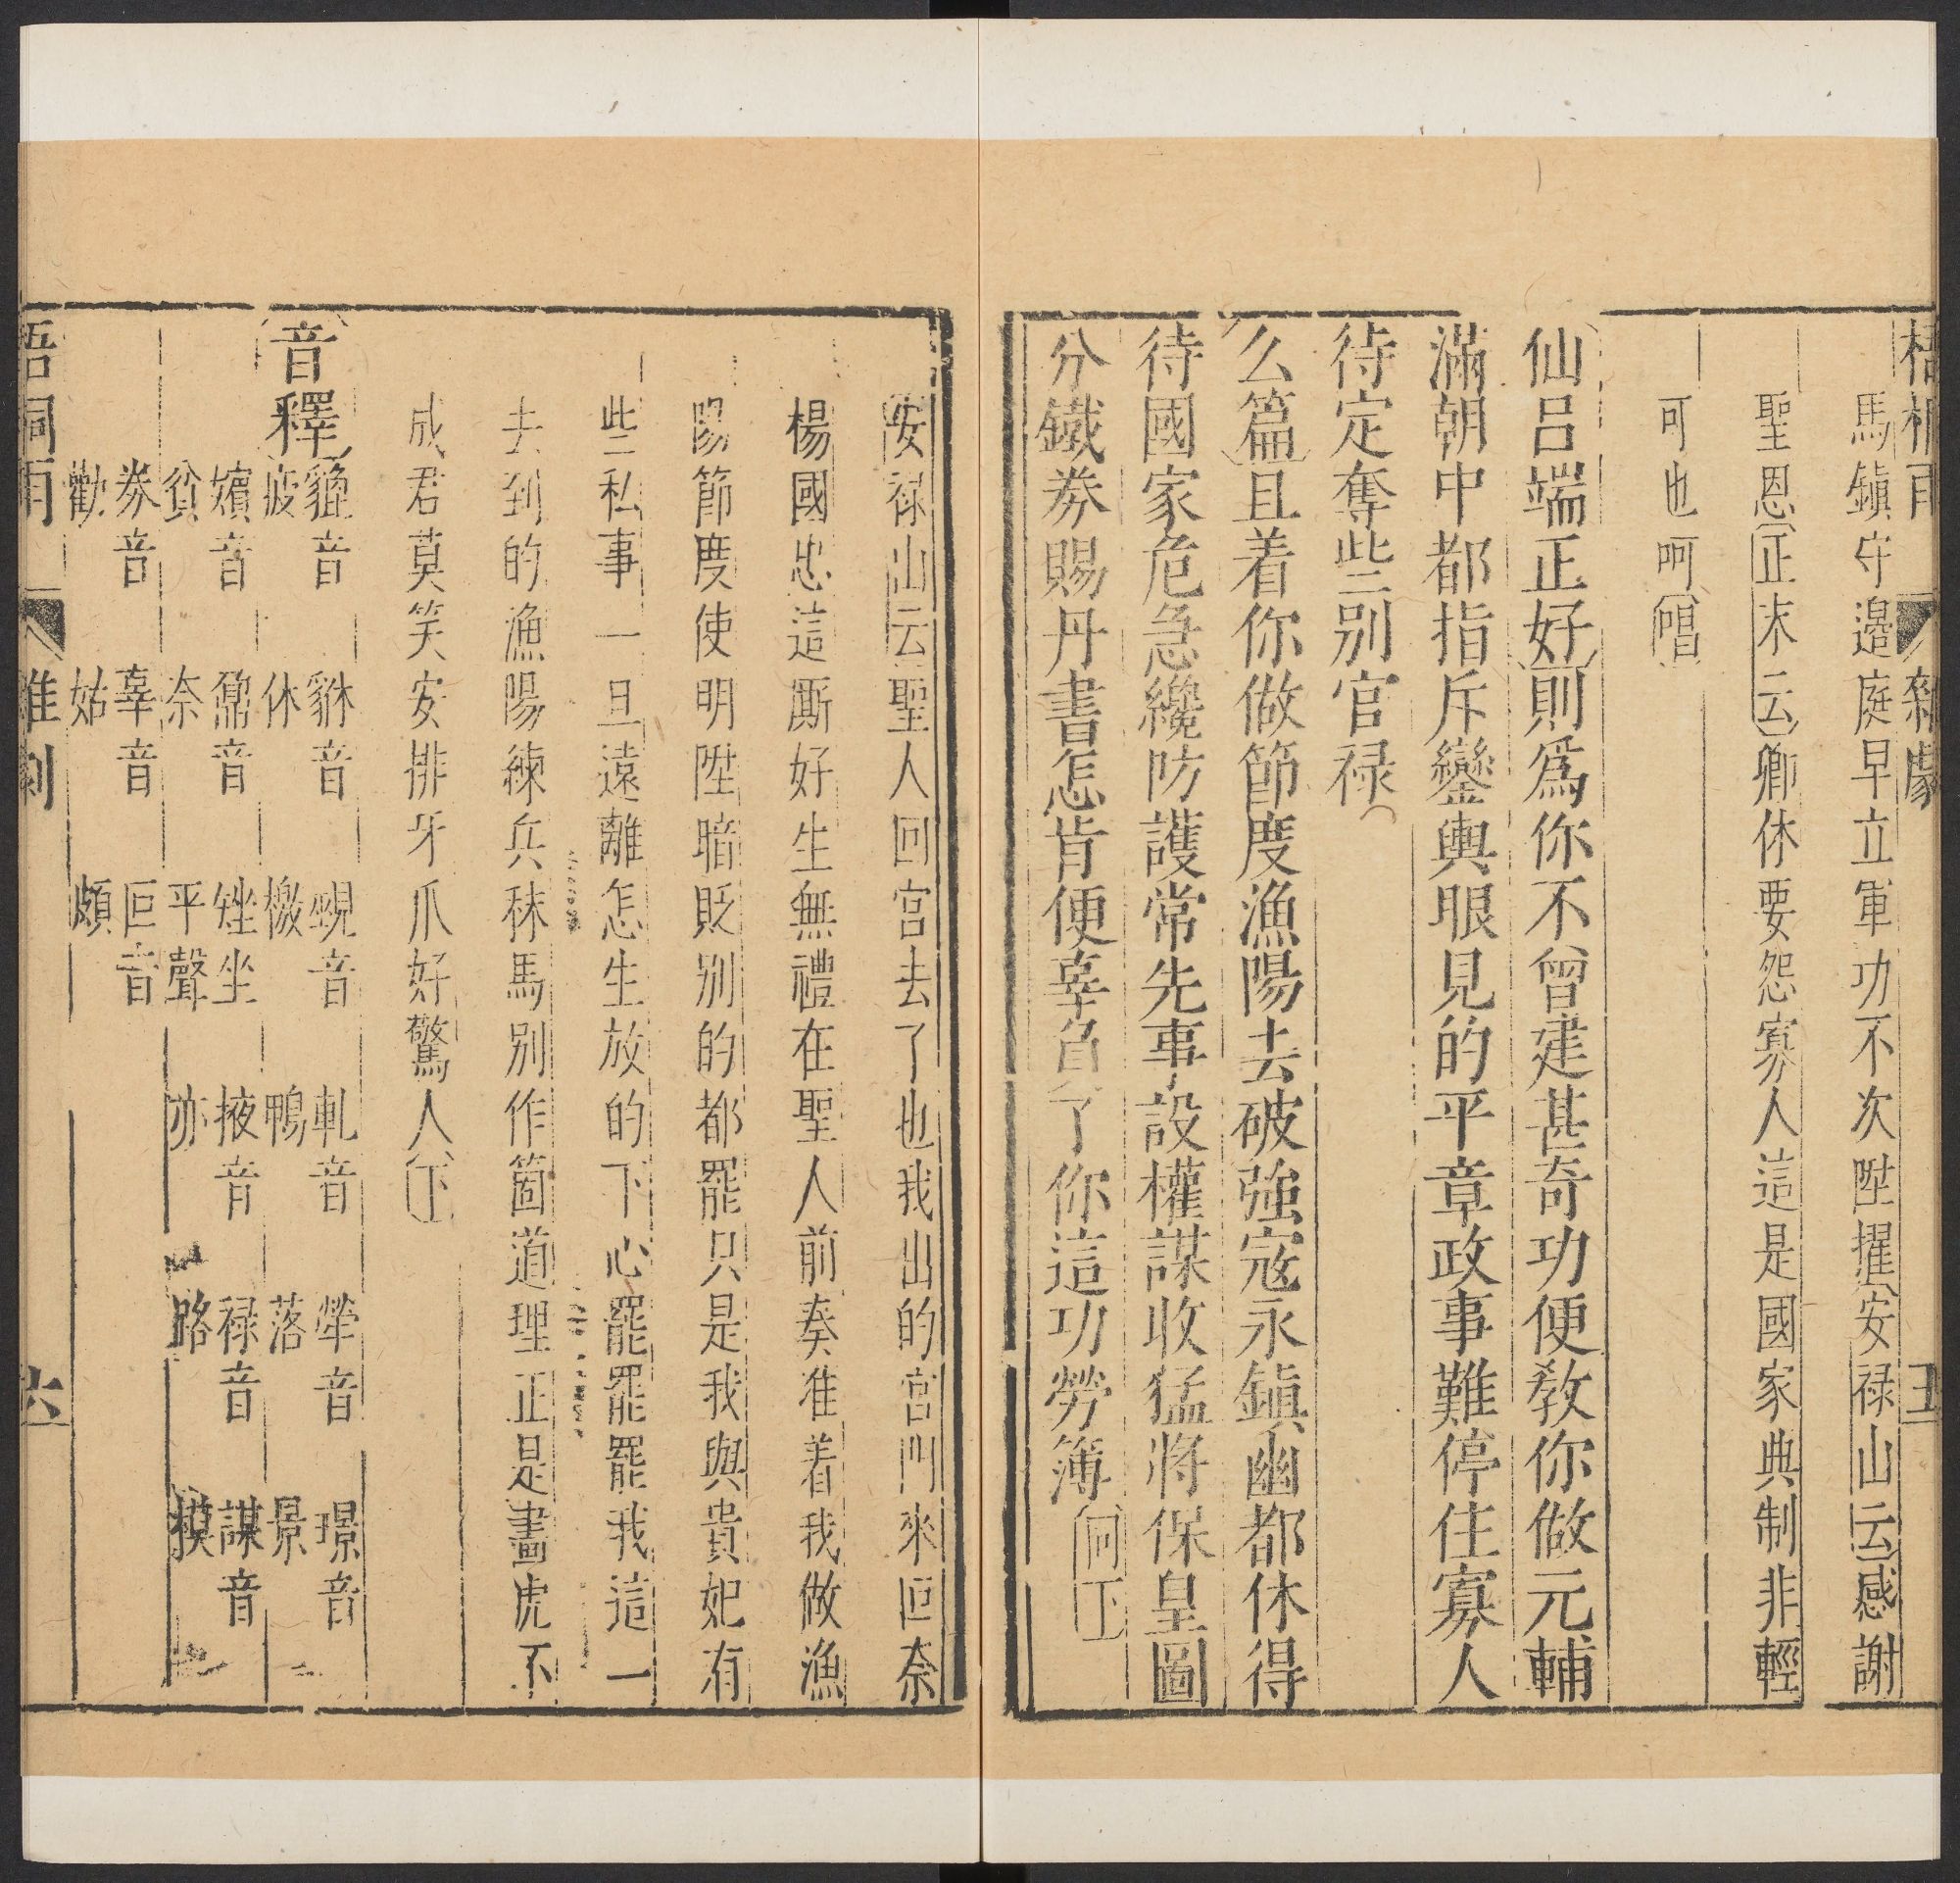 梧桐雨 雜劇 五
馬鎮守邉庭早立軍功不次陞擢安禄山云感謝
聖恩正末云卿休要怨寡人這是國家典制非輕
可也呵唱
仙呂端正好則爲你不曾建甚奇功便教你做元輔
滿朝中都指斥鑾輿眼見的平章政事難停住寡人
待定奪些別官禄
么篇且着你做節度漁陽去破強寇永鎮幽都休得
待國家危急纔防護常先事設權謀收猛將保皇圖
分鐵券賜丹書怎肯便辜負了你這功勞簿同下
安禄山云聖人回宮去了也我出的宮門來叵奈
楊國忠這厮好生無禮在聖人前奏准着我做漁
陽節度使明陞暗貶別的都罷只是我與貴妃有
些私事一旦遠離怎生放的下心罷罷罷我這一
去到的漁陽練兵秣馬別作箇道理正是畫虎不
成君莫笑安排牙爪好驚人下
音釋
貔音疲 貅音休 覡音檄 軋音鴨 犖音落 璟音景
嬪音貧 鼐音奈 矬坐平聲 掖音亦 禄音路 謀音模
券音勸 辜音姑 叵音頗
梧桐雨 雜劇 六